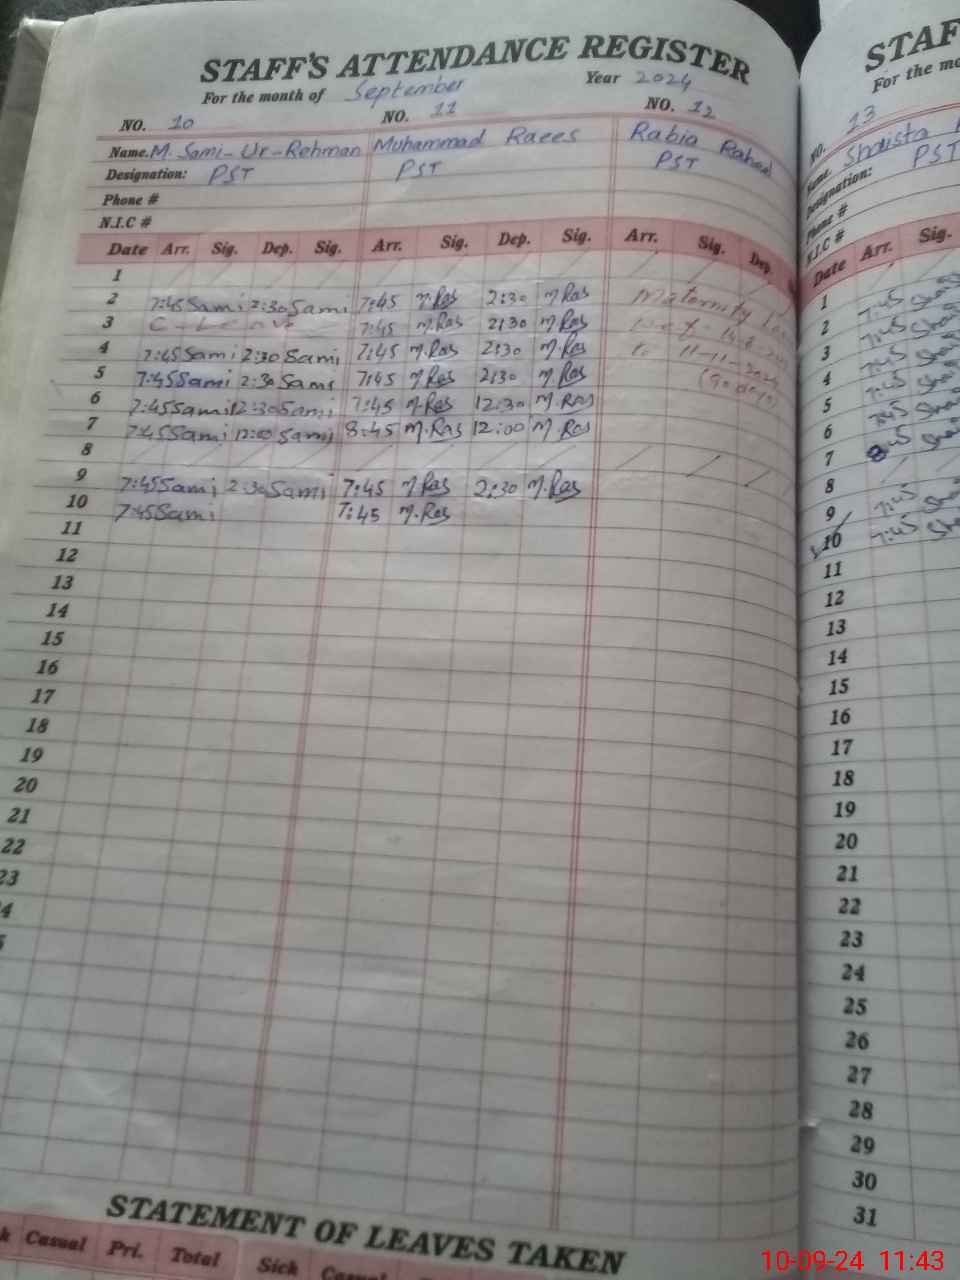 STAFF'S ATTENDANCE REGISTER
For the month of September Year 2024
NO. 10 NO. 11 NO. 12
Name. M. Sami-Ur-Rehman Muhammad Raees Rabia
Designation: PST PST PST
Phone #
N.I.C #
Date Arr. Sig. Dep. Sig. Arr. Sig. Dep. Sig. Arr. Sig. Dep.
1
2 7:45 Sami 2:30 Sami 7:45 M.Ras 2:30 M.Ras Maternity
3 C-Leave 7:45 M.Ras 2:30 M.Ras
4 7:45 Sami 2:30 Sami 7:45 M.Ras 2:30 M.Ras to 11-11-2024
5 7:45 Sami 2:30 Sami 7:45 M.Ras 2:30 M.Ras
6 7:45 Sami 12:30 Sami 7:45 M.Ras 12:30 M.Ras
7 7:45 Sami 12:00 Sami 8:45 M.Ras 12:00 M.Ras
8
9 7:45 Sami 2:30 Sami 7:45 M.Ras 2:30 M.Ras
10 7:45 Sami 7:45 M.Ras
11
12
13
14
15
16
17
18
19
20
21
22
23
STATEMENT OF LEAVES TAKEN
Casual Pri. Total Sick
STAF
For the mo
NO. 13
Name. Shaista
Designation: PST
Phone #
N.I.C #
Date Arr. Sig.
1
2 7:45
3 7:45
4 7:45
5 7:45
6 7:45
7
8
9 7:45
10 7:45
11
12
13
14
15
16
17
18
19
20
21
22
23
24
25
26
27
28
29
30
31
10-09-24 11:43